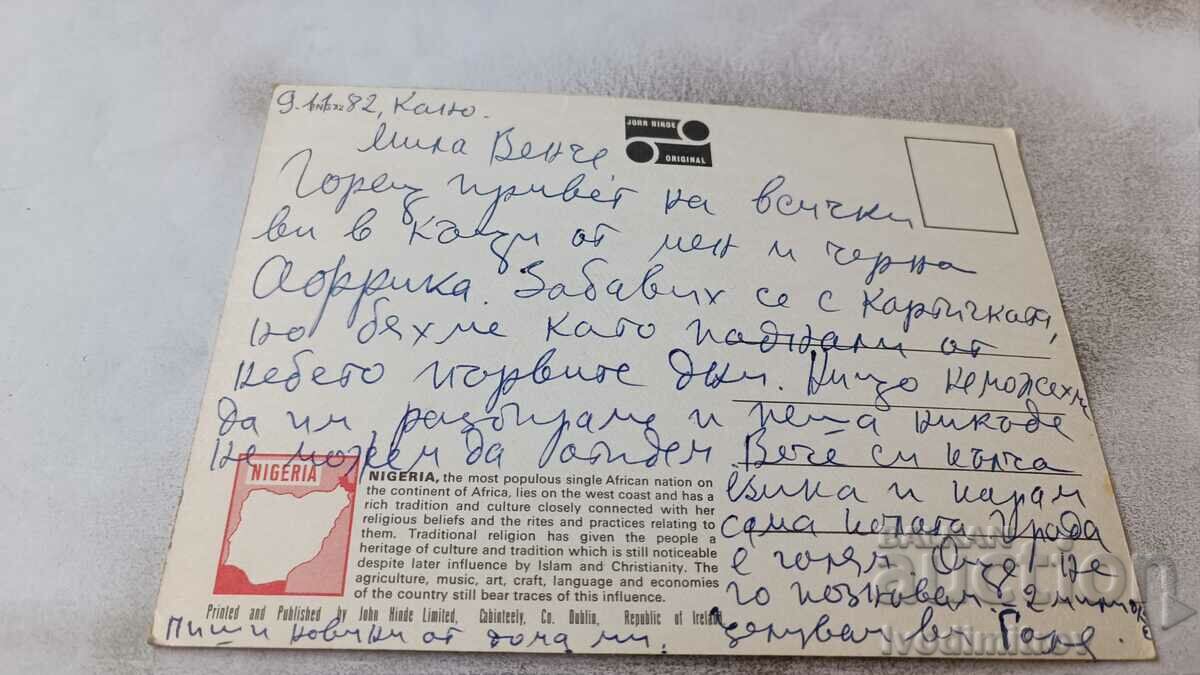 9.11.82, Кано.
JOHN HINDE
ORIGINAL
Мила Венче
Горещ привет на всички
ви в къщи от мен и черна
Африка. Забавих се с картичката,
но бяхме като паднали от
небето първите дни. Нищо не можехме
да им разбираме и пеша никъде
не можем да отидем. Вече си
езика и карам
сама колата. Града
е голям. Още не
го познавам. 2 милиона
целувам ви Галя.
Пиши новини от дома ми.
NIGERIA
NIGERIA, the most populous single African nation on
the continent of Africa, lies on the west coast and has a
rich tradition and culture closely connected with her
religious beliefs and the rites and practices relating to
them. Traditional religion has given the people a
heritage of culture and tradition which is still noticeable
despite later influence by Islam and Christianity. The
agriculture, music, art, craft, language and economies
of the country still bear traces of this influence.
Printed and Published by John Hinde Limited, Cabinteely, Co. Dublin, Republic of Ireland
BALKAN
auction
ivodimitrov